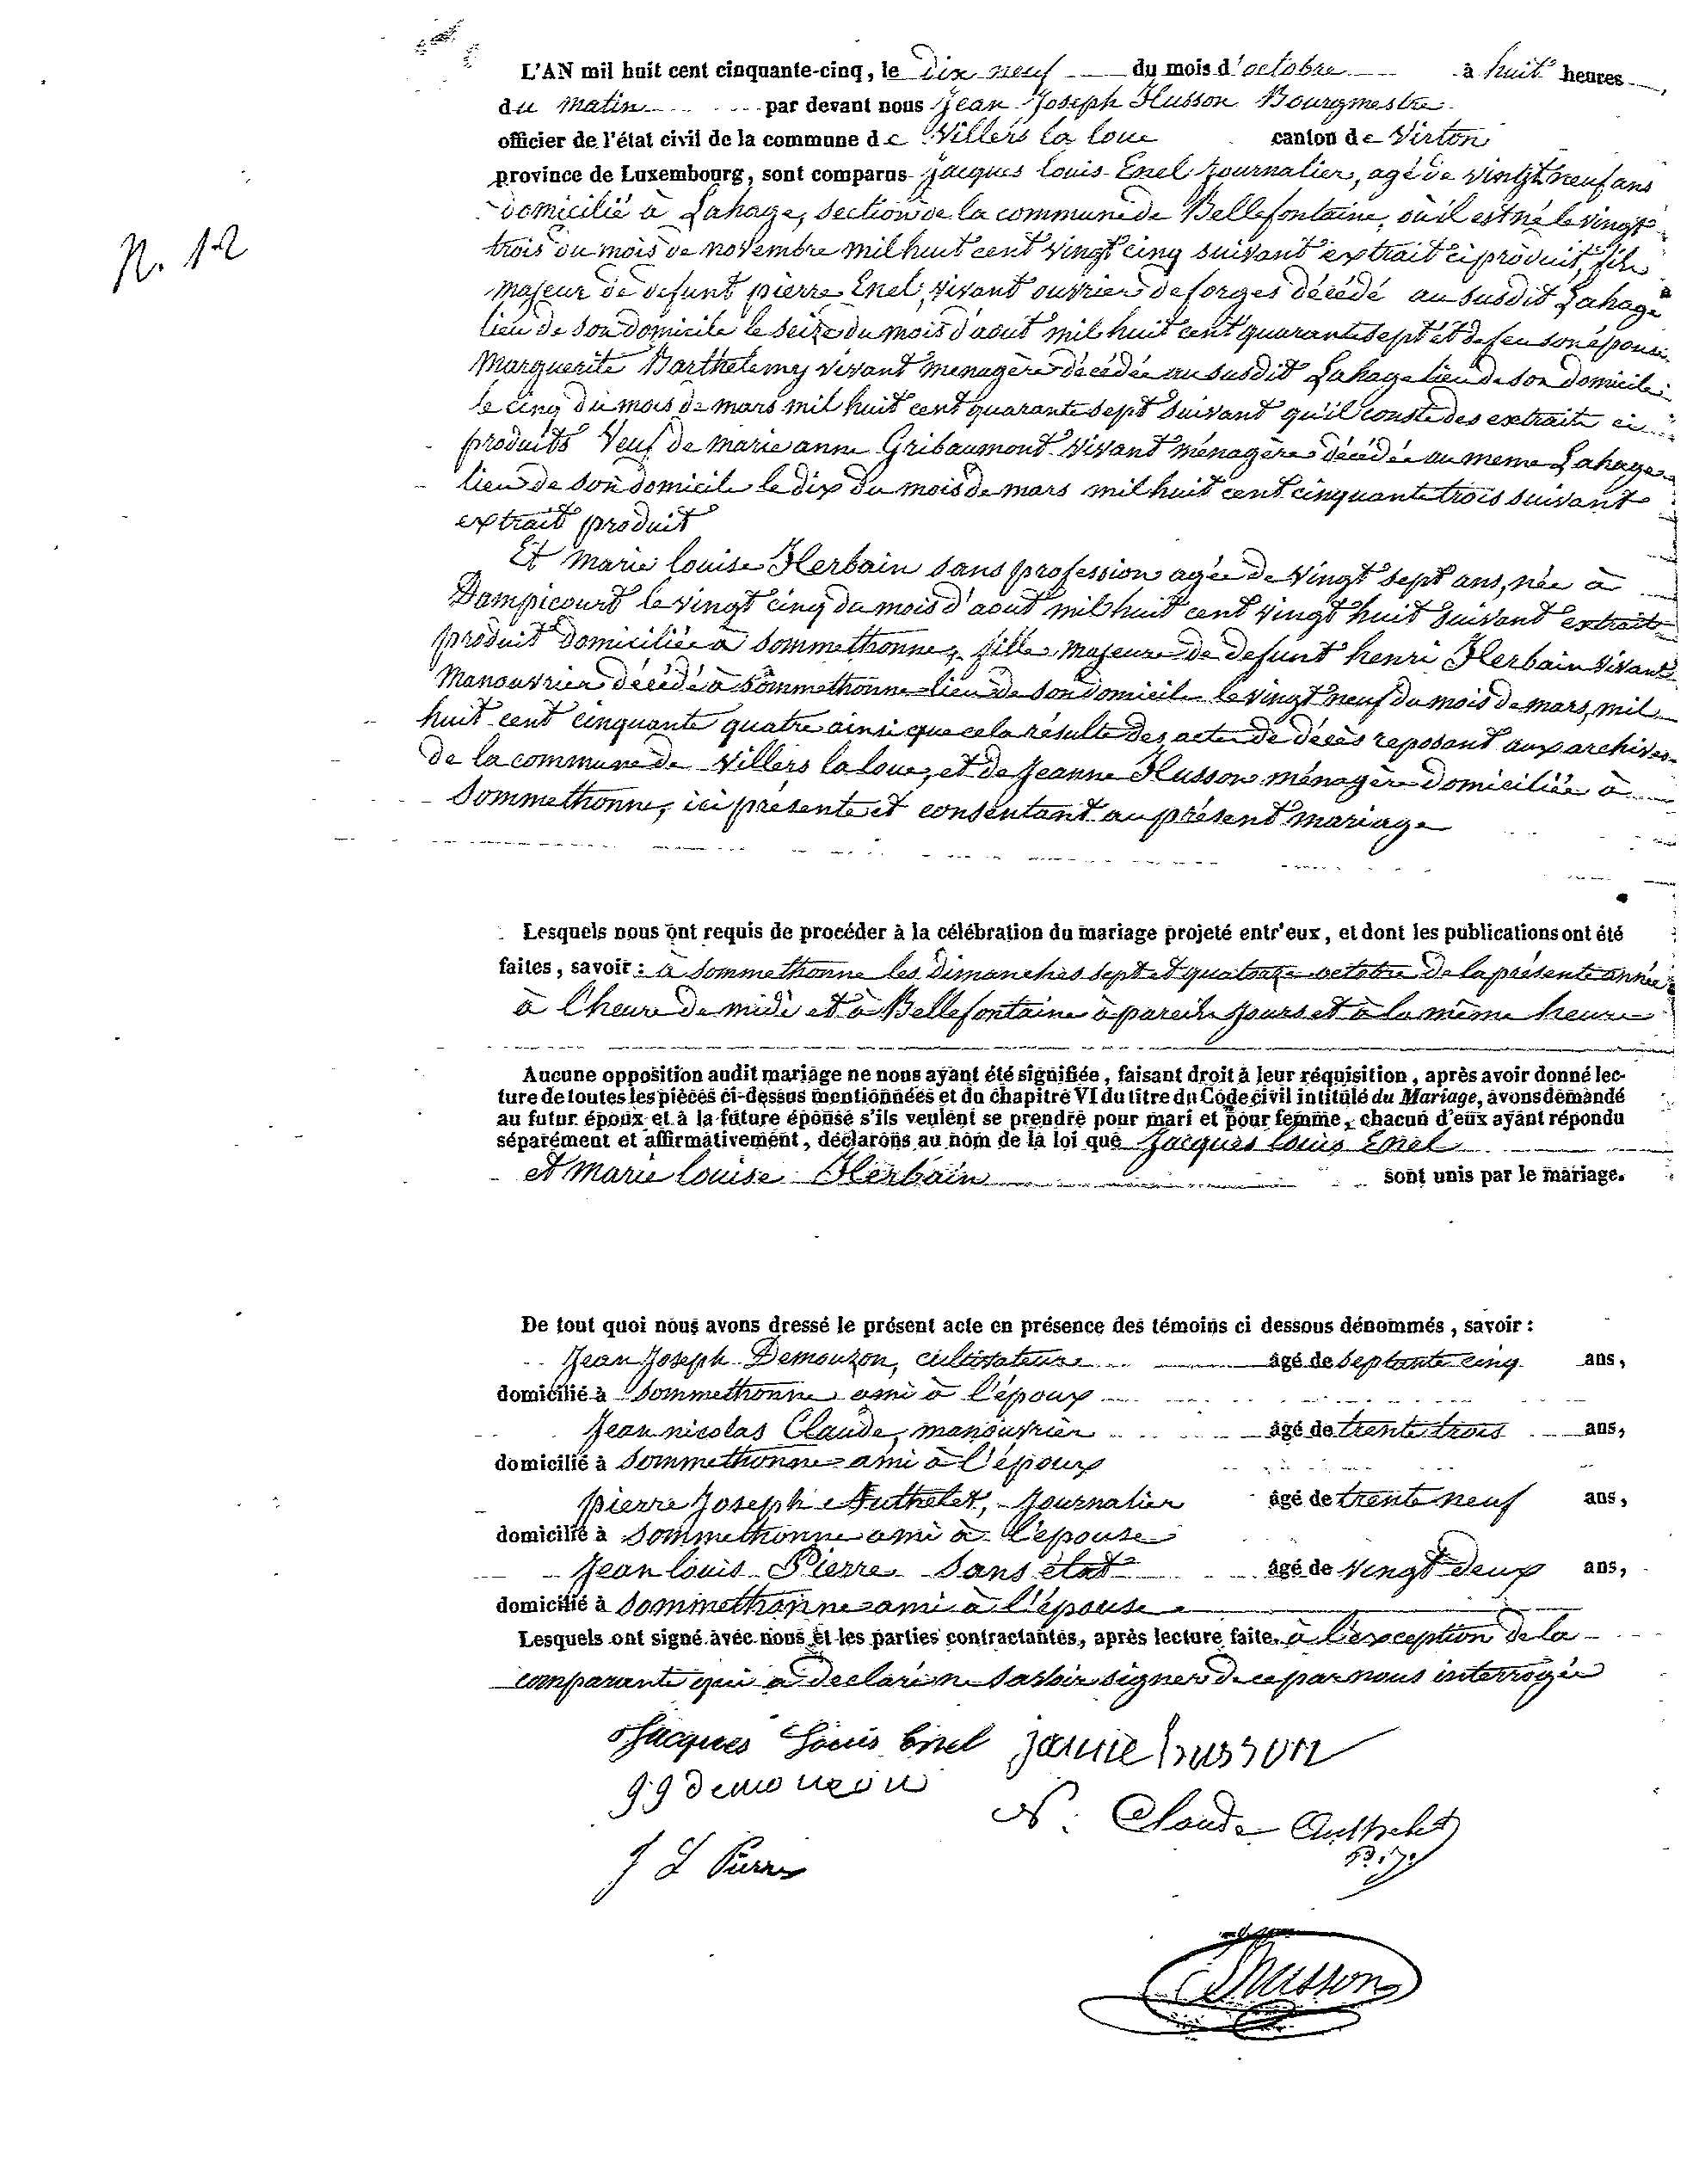 N. 12
L'AN mil huit cent cinquante-cinq, le Dix neuf du mois d'octobre à huit heures
du matin par devant nous Jean Joseph Husson Bourgmestre
officier de l'état civil de la commune de Villers la loue canton de Virton
province de Luxembourg, sont comparus Jacques Louis Enel Journalier, agé de vingt neuf ans
domicilié à Lahage, section de la commune de Bellefontaine, où il est né le vingt
trois du mois de novembre mil huit cent vingt cinq suivant extrait ci produit, fils
majeur de defunt pierre Enel, vivant ouvrier de forges décédé au susdit Lahage
lieu de son domicile le seize du mois d'aout mil huit cent quarante sept et de feu son épouse
Marguerite Barthelemy vivant menagère décédée au susdit Lahage lieu de son domicile
le cinq du mois de mars mil huit cent quarante sept suivant qu'il conste des extraits ci
produits Veuf de marie anne Gribaumont vivant ménagère décédée au meme Lahage
lieu de son domicile le dix du mois de mars mil huit cent cinquante trois suivant
extrait produit
Et marie louise Herbain sans profession agée de vingt sept ans, née à
Dampicourt le vingt cinq du mois d'aout mil huit cent vingt huit suivant extrait
produit domiciliée à Sommethonne, fille majeure de defunt henri Herbain vivant
Manouvrier décédé à Sommethonne lieu de son domicile le vingt neuf du mois de mars, mil
huit cent cinquante quatre ainsi que cela résulte des actes de décès reposant aux archives
de la commune de Villers la loue, et de Jeanne Husson ménagère domiciliée à
Sommethonne, ici présente et consentant au présent mariage
Lesquels nous ont requis de procéder à la célébration du mariage projeté entr'eux, et dont les publications ont été
faites, savoir : à Sommethonne les Dimanches sept et quatorze octobre de la présente année
à l'heure de midi et à Bellefontaine à pareils jours et à la même heure
Aucune opposition audit mariage ne nous ayant été signifiée, faisant droit à leur réquisition, après avoir donné lec-
ture de toutes les pièces ci-dessus mentionnées et du chapitre VI du titre du Code civil intitulé du Mariage, avons demandé
au futur époux et à la future épouse s'ils veulent se prendre pour mari et pour femme, chacun d'eux ayant répondu
séparément et affirmativement, déclarons au nom de la loi que Jacques louis Enel
et Marie louise Herbain sont unis par le mariage.
De tout quoi nous avons dressé le présent acte en présence des témoins ci dessous dénommés, savoir :
Jean Joseph Demouzon, cultivateur âgé de septante cinq ans,
domicilié à Sommethonne ami à l'époux
Jean nicolas Claude, manouvrier âgé de trente trois ans,
domicilié à Sommethonne ami à l'époux
pierre Joseph Authelet, Journalier âgé de trente neuf ans,
domicilié à Sommethonne ami à l'epouse
Jean louis Pierre sans état âgé de vingt deux ans,
domicilié à Sommethonne ami à l'épouse
Lesquels ont signé avec nous et les parties contractantes, après lecture faite. à l'exception de la
comparante qui a declaré ne savoir signer de ce par nous interrogée
Jacques Louis Enel janne husson
JJ demouzon
N. Claude Authelet
P. J.
J L Pierre
Husson